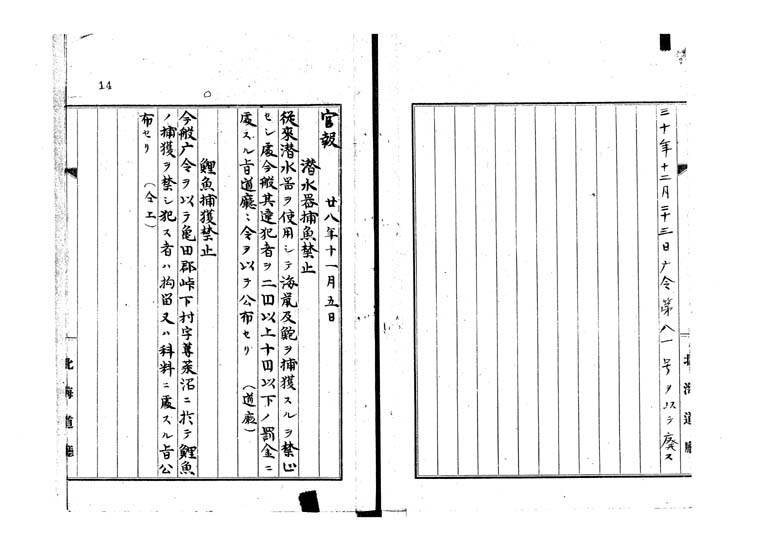 三十年十二月二十三日广令第八一号ヲ以テ廃ス
北海道廳
14
官報　廿八年十一月五日
潜水器捕魚禁止
従来潜水器ヲ使用シテ海鼠及鮑ヲ捕獲スルヲ禁止
セシ處今般其違犯者ヲ二円以上十円以下ノ罰金ニ
處スル旨道廳ニ令ヲ以テ公布セリ　（道廳）
鯉魚捕獲禁止
今般广令ヲ以テ亀田郡峠下村字蓴菜沼ニ於テ鯉魚
ノ捕獲ヲ禁シ犯ス者ハ拘留又ハ科料ニ處スル旨公
布セリ　（仝上）
北海道廳